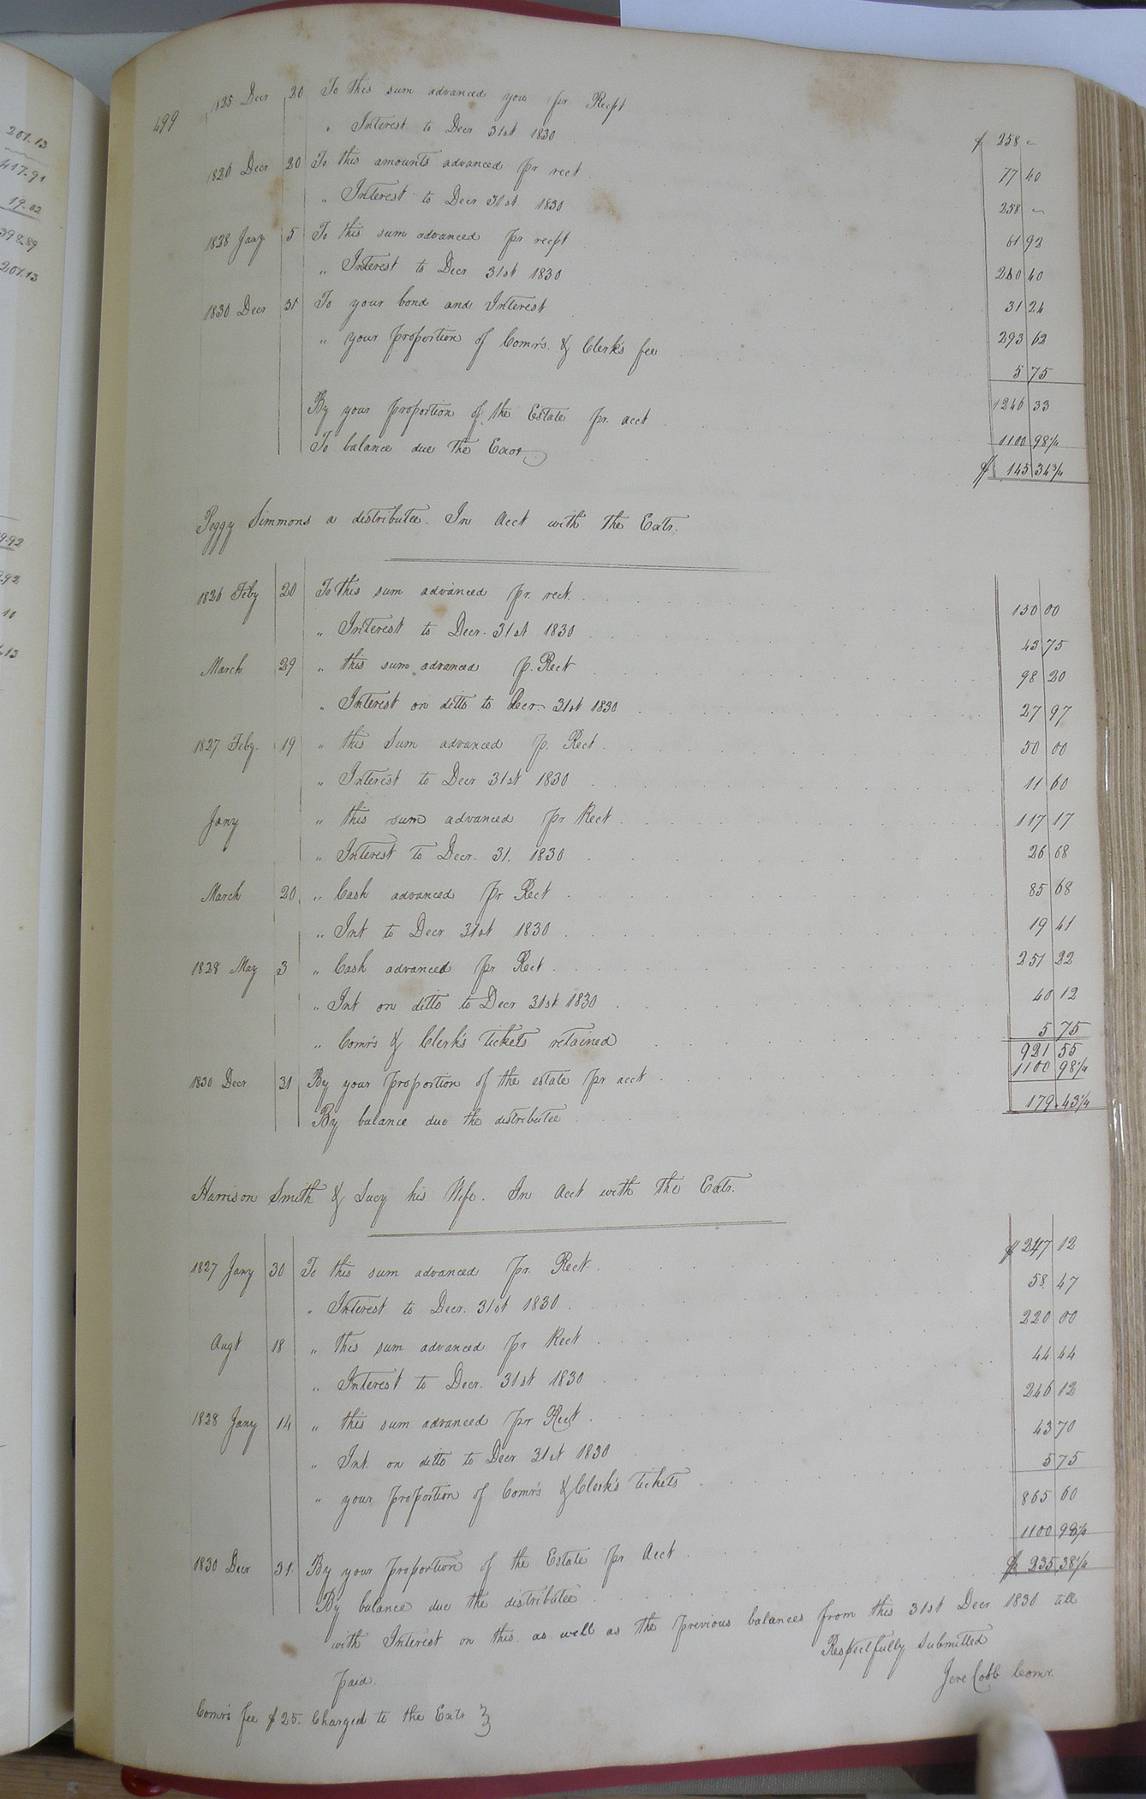 201.13
417.91
19.02
398.89
201.13
9.92
.92
10
.13
499
1825 Decr 20 To this sum advanced you pr. Recpt $ 258 "
" Interest to Decr 31st 1830 77 40
1826 Decr 20 To this amounts advanced pr rect 258 "
" Interest to Decr 31st 1830 61 92
1828 Jany 5 To this sum advanced pr recpt 260 40
" Interest to Decr 31st 1830 31 24
1830 Decr 31 To your bond and Interest 293 62
" your proportion of Comr's. & Clerk's fee 5 75
1246 33
By your proportion of the Estate pr. acct 1100 98 1/4
To balance due the Exor $ 145 34 3/4
Peggy Simmons a distributee. In acct with the Exts.
1826 Feby 20 To this sum advanced pr. rect. 150 00
" Interest to Decr. 31st 1830 43 75
March 29 " this sum advanced p. Rect 98 20
" Interest on ditto to Decr. 31st 1830 27 97
1827 Feby. 19 " this Sum advanced p. Rect. 50 00
" Interest to Decr 31st 1830 11 60
Jany " this sum advanced pr Rect. 117 17
" Interest to Decr. 31. 1830 26 68
March 20 " Cash advanced pr Rect 85 68
" Int to Decr 31st 1830 19 41
1828 May 3 " Cash advanced pr Rect 251 22
" Int on ditto to Decr 31st 1830 40 12
" Comr's & Clerk's tickets retained 5 75
921 55
1830 Decr 31 By your proportion of the estate pr acct 1100 98 1/4
By balance due the distributee 179.43 1/4
Harrison Smith & Lucy his Wife. In Acct with the Exts.
1827 Jany 30 To this sum advanced pr. Rect. $ 247 12
" Interest to Decr. 31st 1830 58 47
Augt 18 " this sum advanced pr Rect 220 00
" Interest to Decr. 31st 1830 44 44
1828 Jany 14 " this sum advanced pr Rect. 246 12
" Int. on ditto to Decr 31st 1830 43 70
" your proportion of Comr's & Clerk's tickets 5 75
865 60
1830 Decr 31 By your proportion of the Estate pr. Acct 1100 98 1/4
By balance due the distributee $ 235.38 1/4
with Interest on this as well as the previous balances from this 31st Decr 1830 till
paid. Respectfully Submitted
Jere Cobb Comr.
Comr's fee $ 25. Charged to the Exts }